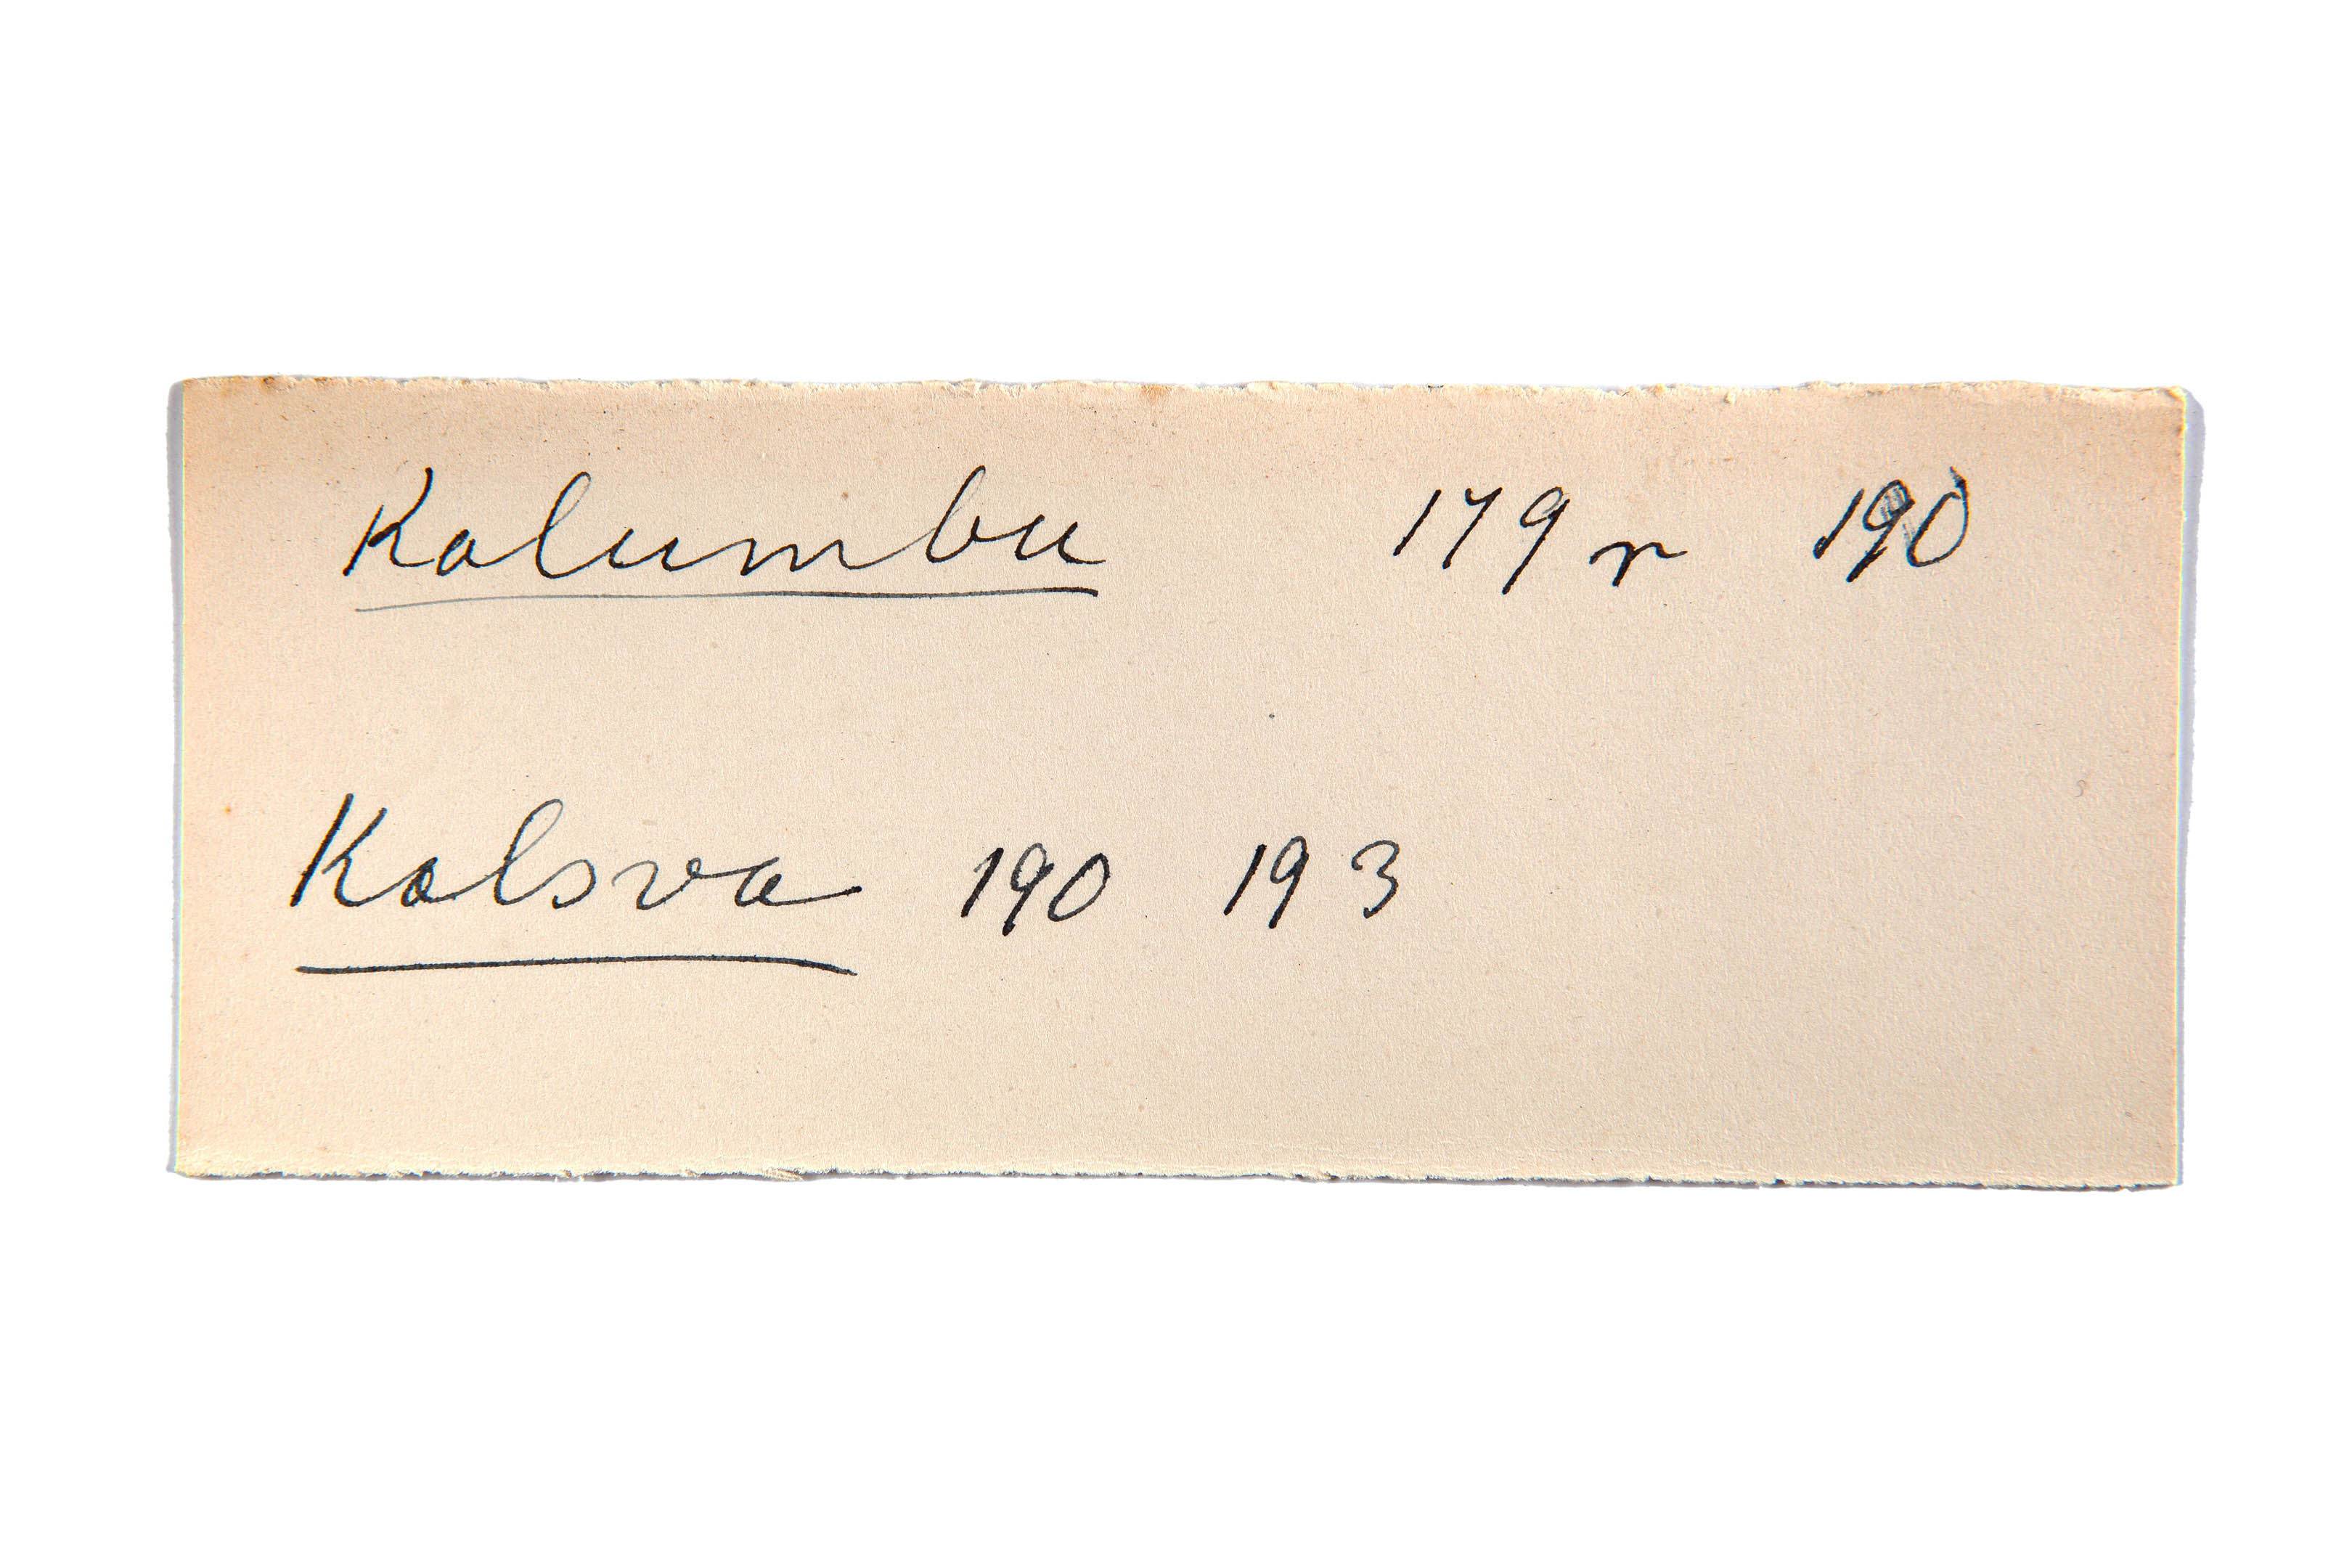 Kolumbu 179 r 190
Kolsva 190 193